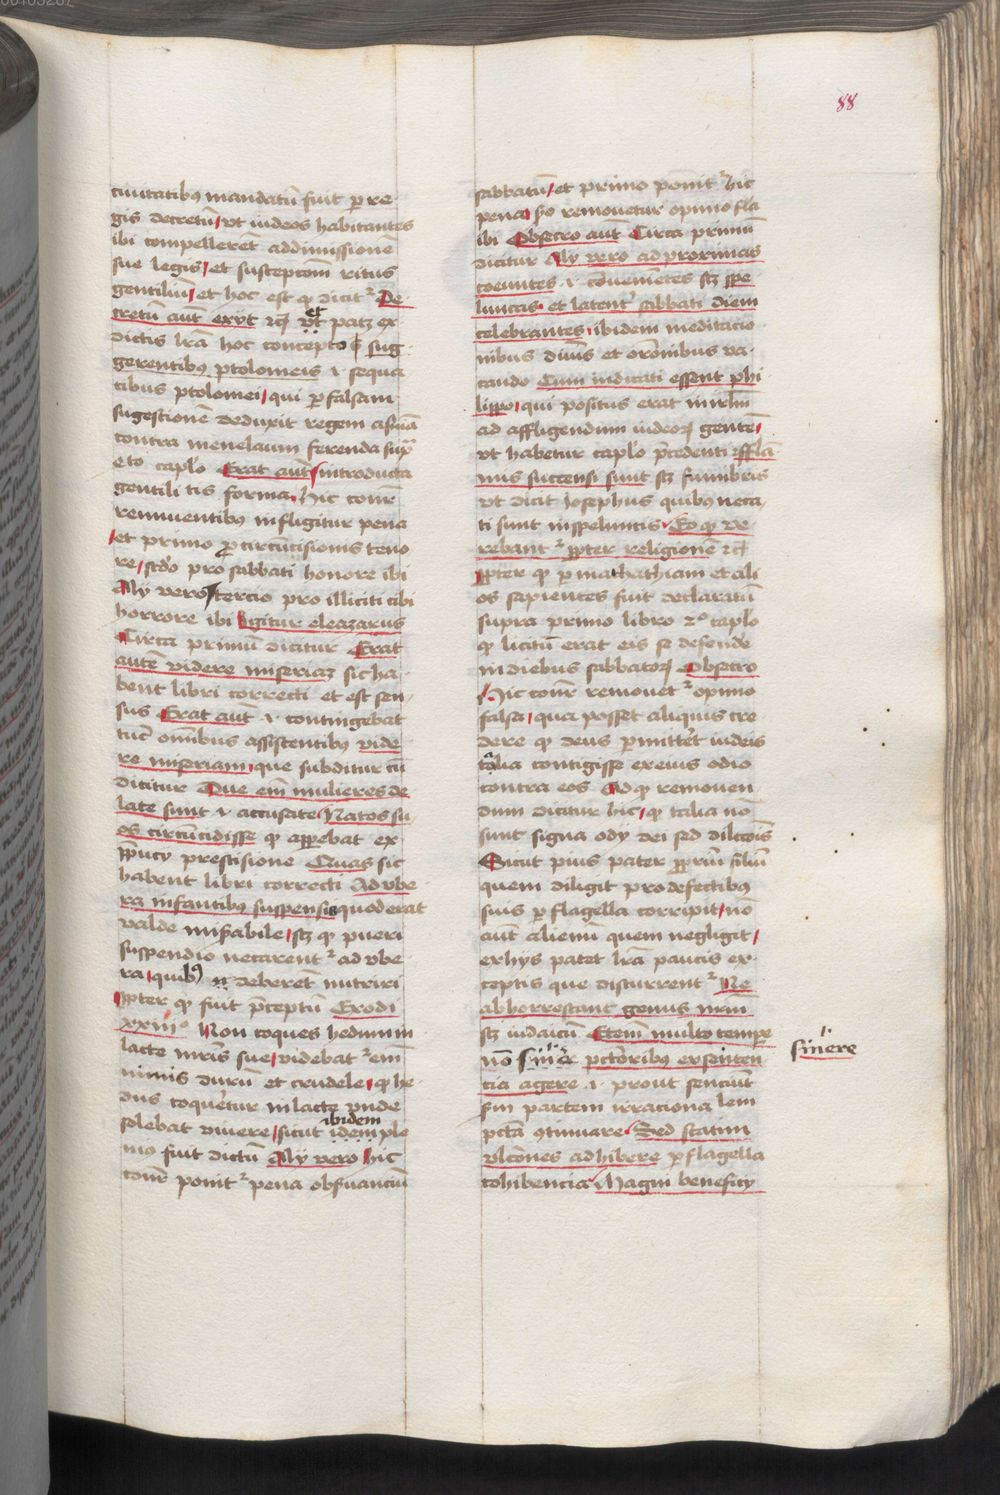 88
ciuitatibꝰ mandatū fuit ꝑ re
gis decretū vt iudeos habitantes
ibi compellerēt addimissionē
sue legis et susceptōm ritus
gentiliū et hoc est qꝫ dicit᷑ De
cretū aut̄ exijt ⁊cꝫ vt et patꝫ ex
dictis lrā hoc concepto sug
gerentibꝰ ptolomeis .i. sequa
cibus ptolomei qui ꝑ falsam
sugestionē deduxit regem
contra menelaum ferenda
capło Erat aut̄ introducta
gentili tis forma Hic cōn̄r
rennuentibꝰ infligitur pena
et primo ꝓ circūcisionis teno
re scd̄o pro sabbati honore ibi
Alij vero tercio pro illiciti cibi
horrore ibi Igitur eleazarus
Circa primū dicitur Erat
autē videre miseriaꝫ sic ha
bent libri correcti et est sen
sus Erat aut̄ .i. contingebat
tūc om̄ibus assistentibꝰ vide
re miseriam que subditur cū
dicitur Due em̄ mulieres de
late sunt .i. accusate Natos su
os circūcidisse qꝫ apꝑebat ex
p̄pucij prescisione Quas sic
habent libri correcti Ad vbe
ra infantibꝰ suspensis quod erat
valde mis̄abile scꝫ qꝫ pueri
suspendio necarent᷑ ad vbe
ra quibꝰ deberēt nutriri
ꝓpter qꝫ fuit p̄ceptū Exodi
xxiijº Non coques hedum in
lacte mr̄is sue videbat᷑ em̄
nimis durū et crudele qꝫ he
dus coqueretur in lacte vnde
solebat viuere sicut idem ibidem ple
nio fuit dictū Alij vero Hic
cōn̄r ponit᷑ pena obs̄uanciū
sabbatū et primo ponit᷑ hic
pena s̄o remouetur opinio fl̄a
ibi Obsecro aut̄ Circa primū
dicitur Alij vero ad proximas
coeuntes .i. cōuenientes scꝫ spe
luncas et latent᷑ sabbati diem
celebrantes ibidem meditacio
nibus diuīs et orōnibus va
cando Cum indicati essent phi
lippo qui positus erat
ad affligendum iudeoꝝ gentē
vt habetur capło p̄cedenti fflā
mis succensi sunt scꝫ fumibris
vt dicit Iosephus quibꝰ neca
ti sunt inspeluncis Eo qꝫ ve
rebant᷑ ꝓpter religionē ⁊cꝫ
ꝓpter qꝫ ꝑ mathathiam et ali
os sapientes fuit declaratū
supra primo libro 2º capło
qꝫ licitū erat eis se defende
in diebus sabbatoꝝ Obsecro
Hic cōn̄r remouet᷑ opinio
falsa qua posset aliquis cre
dere qꝫ deus ꝑmittet iudeis
talia contigisse exeius odio
contra eos Ad qꝫ remouen
dum dicitur hic qꝫ talia nō
sunt signa odij dei sed dilc̄ōis
Sicut pius pater ꝓpriū filiū
quem diligit pro defectibꝰ
suis ꝑ flagella corripit nō
aut̄ alienū quem negligit
ex hijs patet lrā paucis ex
ceptis que discurrent᷑ Ne
abhorrescant genus nr̄m̄
scꝫ iudaicū Etenim multo tempe
nō sinere pctōribus exsenten
cia agere .i. prout senciūt
s̄m partem irraciona lem
pctā ꝯtinuare Sed statim
vlc̄ōnes adhibere ꝑ flagella
cohibencia Magni beneficij
sinere